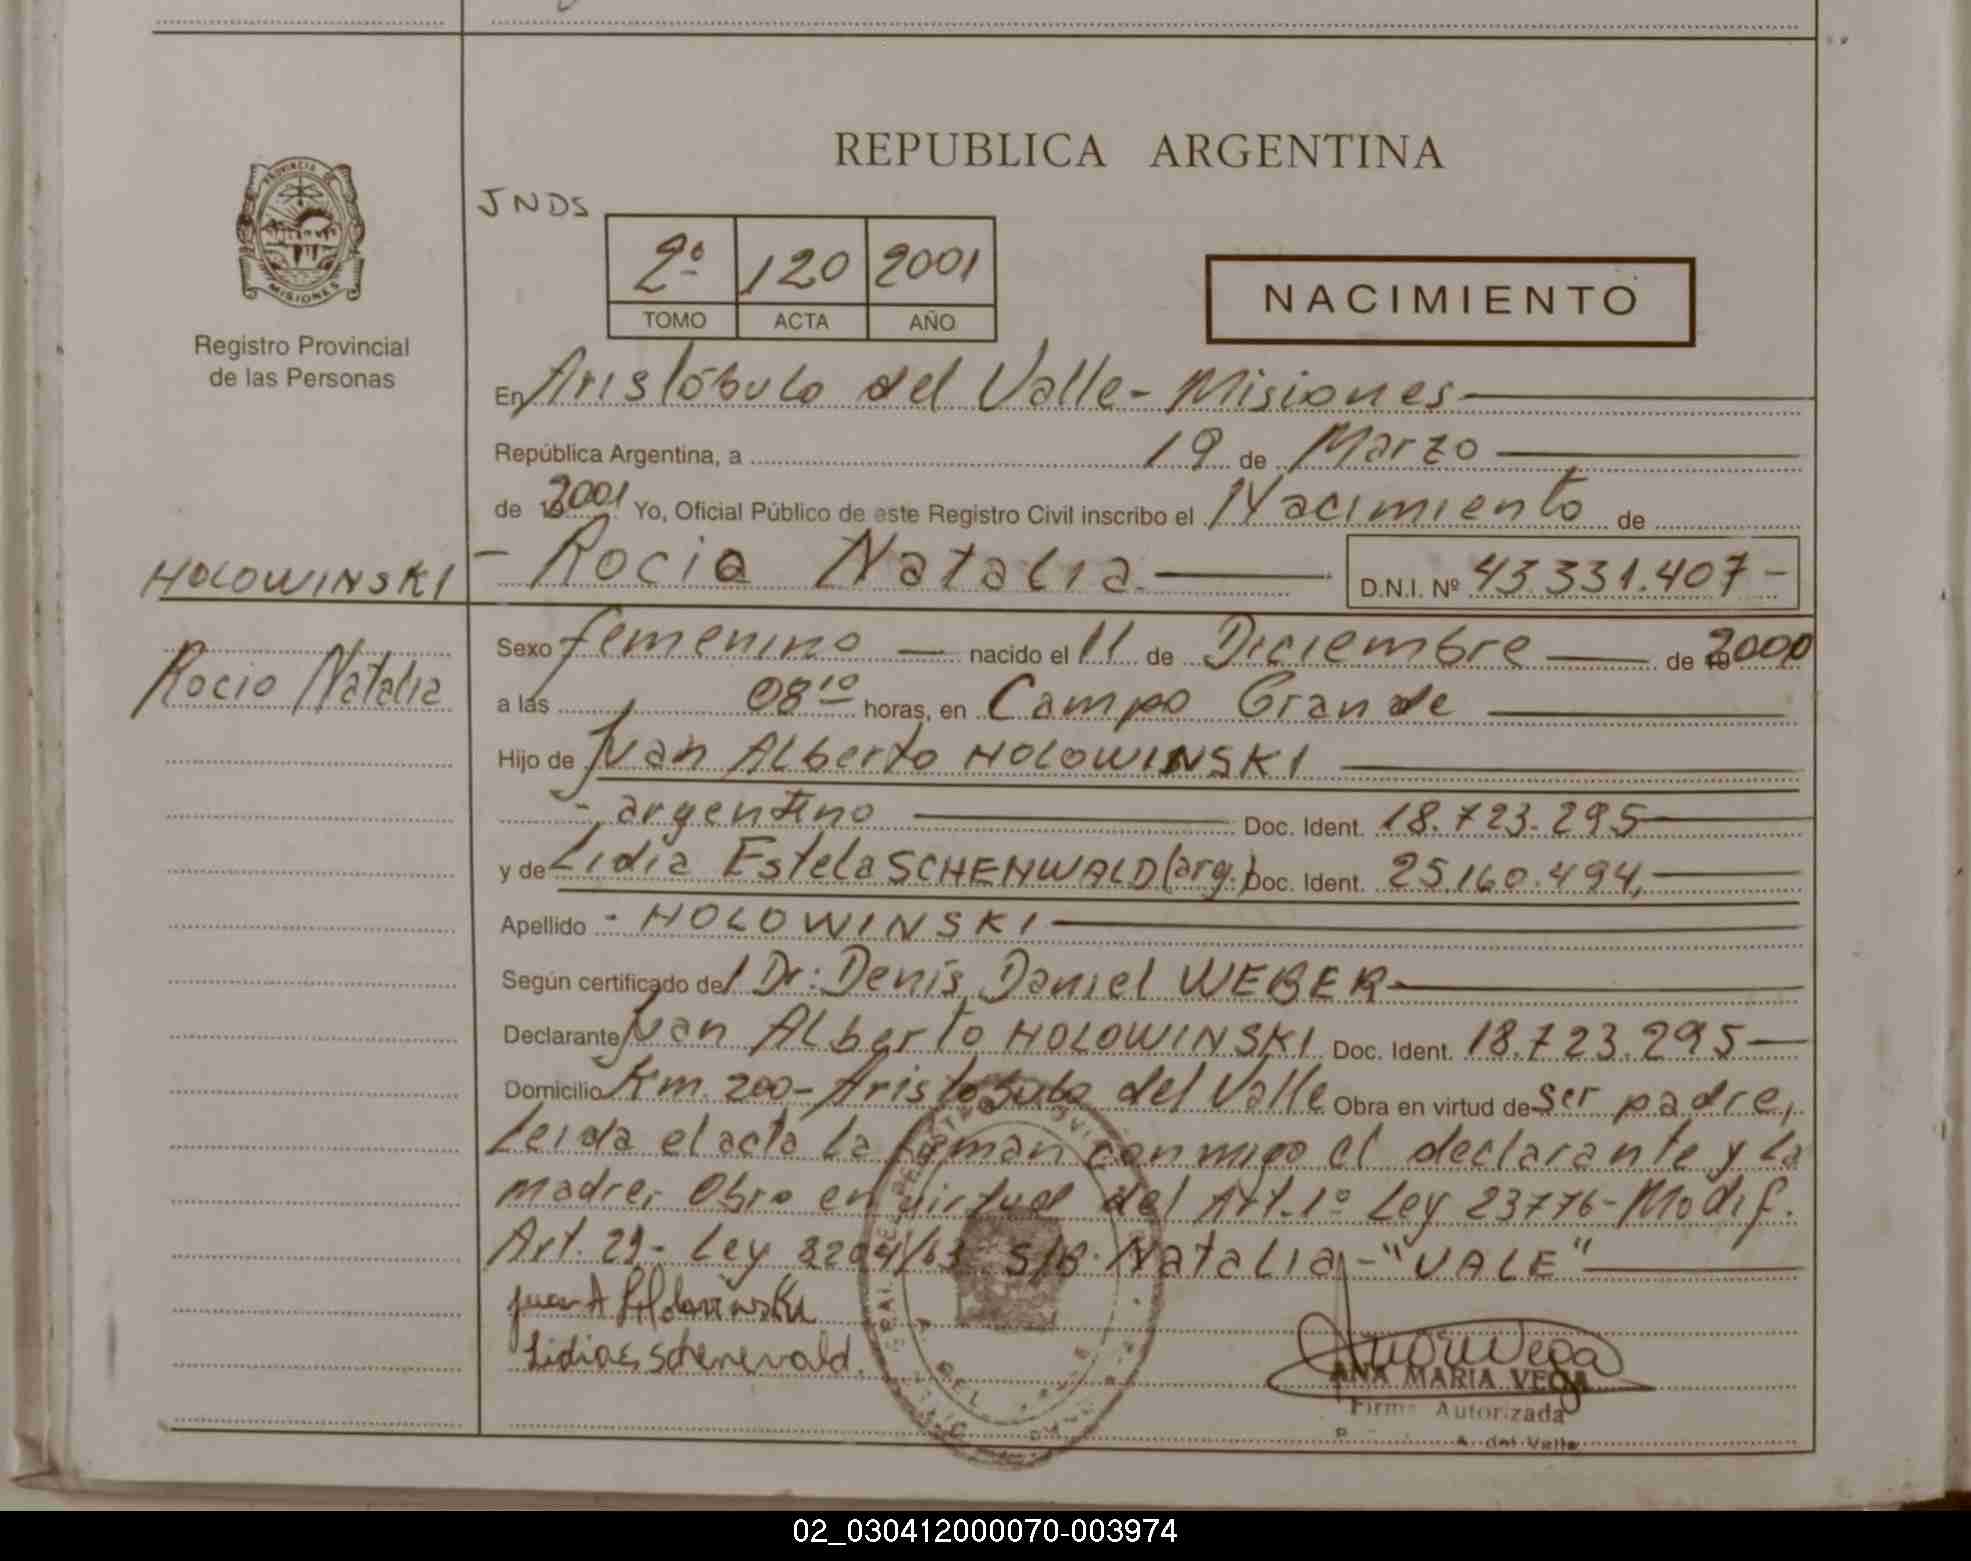 REPUBLICA ARGENTINA
JNDS
2º 120 2001
TOMO ACTA AÑO
NACIMIENTO
PROVINCIA DE
MISIONES
Registro Provincial
de las Personas
En Aristóbulo del Valle - Misiones
República Argentina, a 19 de Marzo
de 2001 Yo, Oficial Público de este Registro Civil inscribo el Nacimiento de
HOLOWINSKI
- Rocio Natalia D.N.I. Nº 43.331.407-
Rocio Natalia
Sexo femenino nacido el 11 de Diciembre de 2000
a las 08 10 horas, en Campo Grande
Hijo de Juan Alberto HOLOWINSKI
- argentino Doc. Ident. 18.723.295
y de Lidia Estela SCHENWALD (arg.) Doc. Ident. 25.160.494,
Apellido - HOLOWINSKI
Según certificado del Dr: Denis Daniel WEBER
Declarante Juan Alberto HOLOWINSKI Doc. Ident. 18.723.295
Domicilio Km. 200 - Aristobulo del Valle Obra en virtud de ser padre,
Leida el acta la firman conmigo el declarante y la
madre, Obro en virtud del Art. 1º Ley 23776 - Modif.
Art. 29 - Ley 8204/63 S/B. Natalia - "VALE"
Juan A Holowinski
ANA MARIA VEGA
Firma Autorizada
A. del Valle
02_030412000070-003974